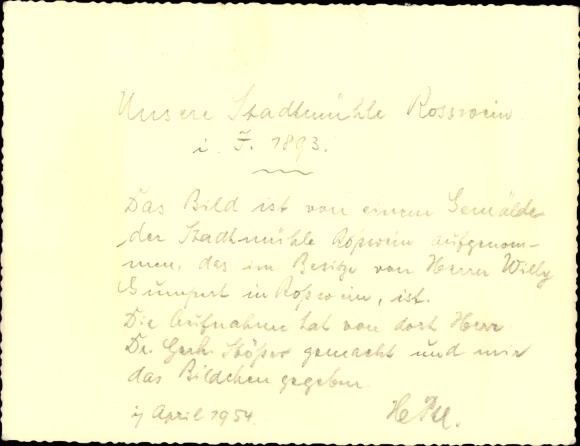 Unsere Stadtmühle Rosswein
i. J. 1893.
Das Bild ist von einem Gemälde
der Stadtmühle Roßwein aufgenom-
men, das im Besitze von Herrn Willy
Gumpert in Roßwein, ist.
Die Aufnahme hat von dort Herr
Dr. Gerh. gemacht und mir
das Bildchen gegeben
April 1954.